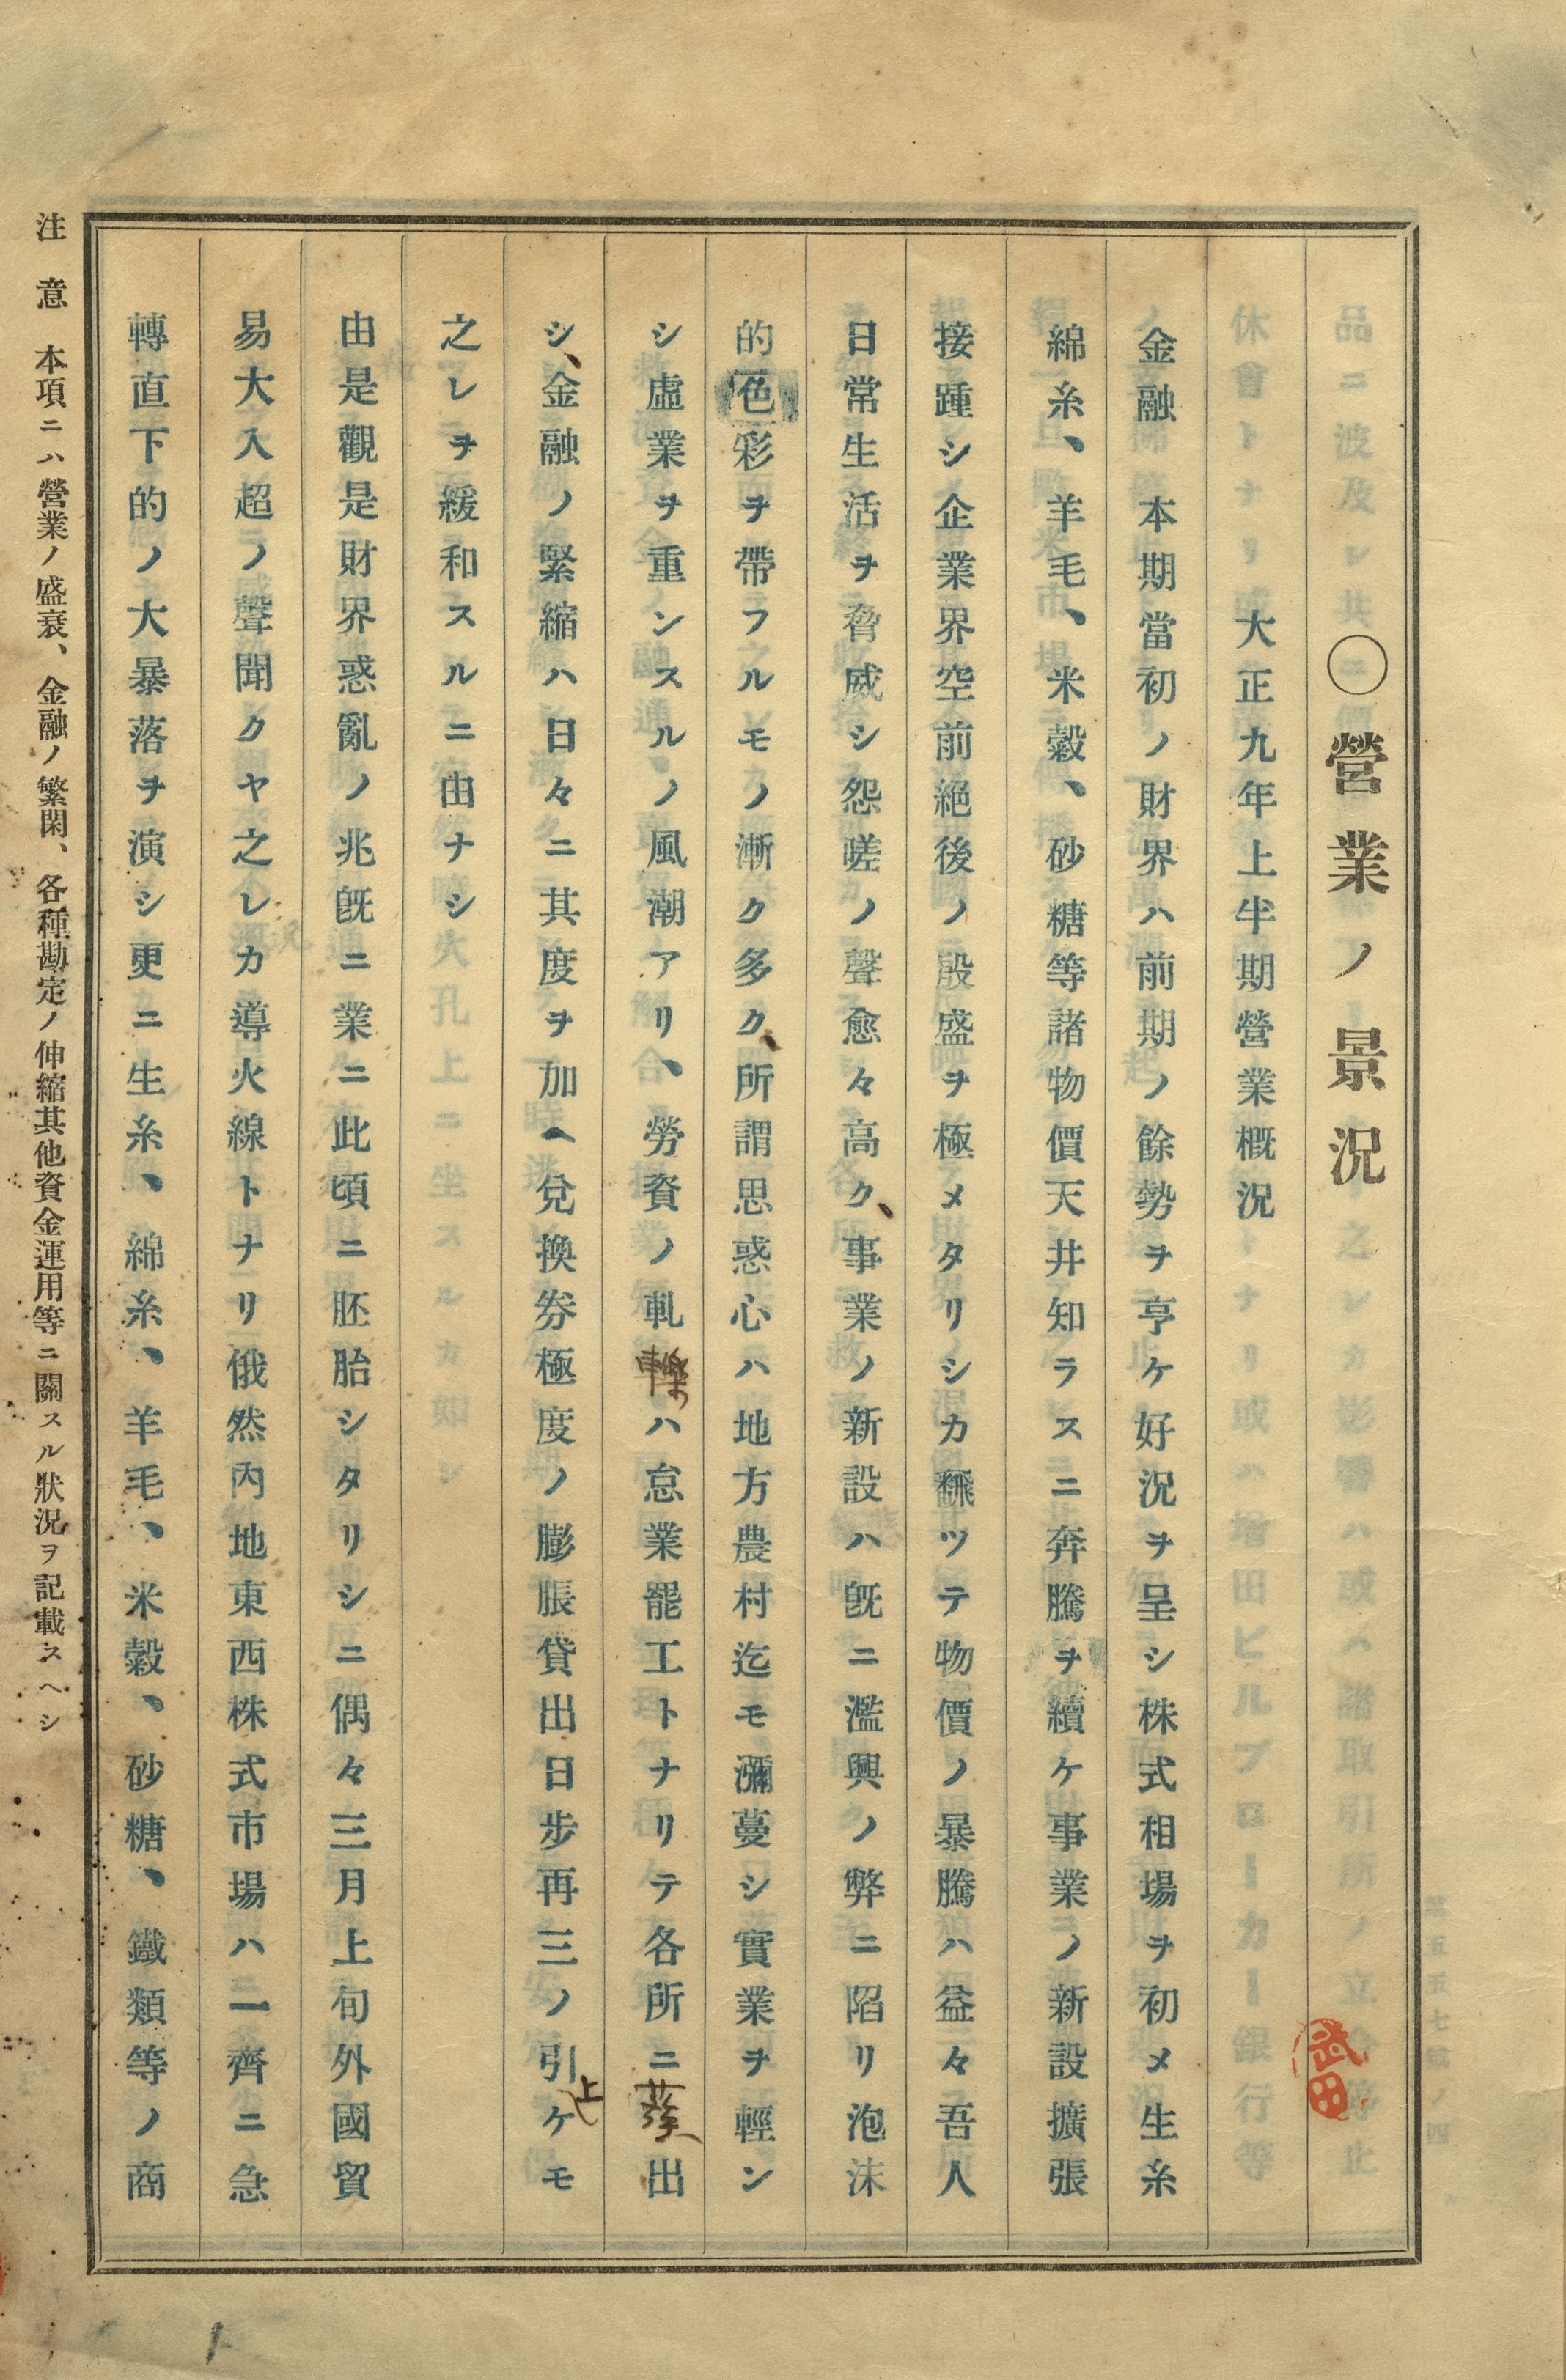 〇營業ノ景況
大正九年上半期營業槪況
金融　本期當初ノ財界ハ前期ノ餘勢ヲ亨ケ好況ヲ呈シ株式相場ヲ初メ生糸
綿糸、羊毛、米穀、砂糖等諸物價天井知ラスニ奔騰ヲ續ケ事業ノ新設擴張
接踵シ企業界空前絕後ノ殷盛ヲ極メタリシカ飜ツテ物價ノ暴騰ハ益々吾人
日常生活ヲ脅威シ怨嗟ノ聲愈々高ク、事業ノ新設ハ旣ニ濫興ノ弊ニ陷リ泡沫
的色彩ヲ帶フルモノ漸ク多ク、所謂思惑心ハ地方農村迄モ瀰蔓シ實業ヲ輕ン
シ虛業ヲ重ンスルノ風潮アリ、勞資ノ軋轢ハ怠業罷工トナリテ各所ニ發出
シ、金融ノ緊縮ハ日々ニ其度ヲ加ヘ兌換券極度ノ膨脹貸出日步再三ノ引上ケモ
之レヲ緩和スルニ由ナシ
由是觀是財界惑亂ノ兆旣ニ業ニ此頃ニ胚胎シタリシニ偶々三月上旬外國貿
易大入超ノ聲聞クヤ之レカ導火線トナリ俄然內地東西株式市場ハ一齊ニ急
轉直下的ノ大暴落ヲ演シ更ニ生糸、綿糸、羊毛、米穀、砂糖、鐵類等ノ商
注意　本項ニハ營業ノ盛衰、金融ノ繁閑、各種勘定ノ伸縮其他資金運用等ニ關スル狀況ヲ記載スヘシ
武田